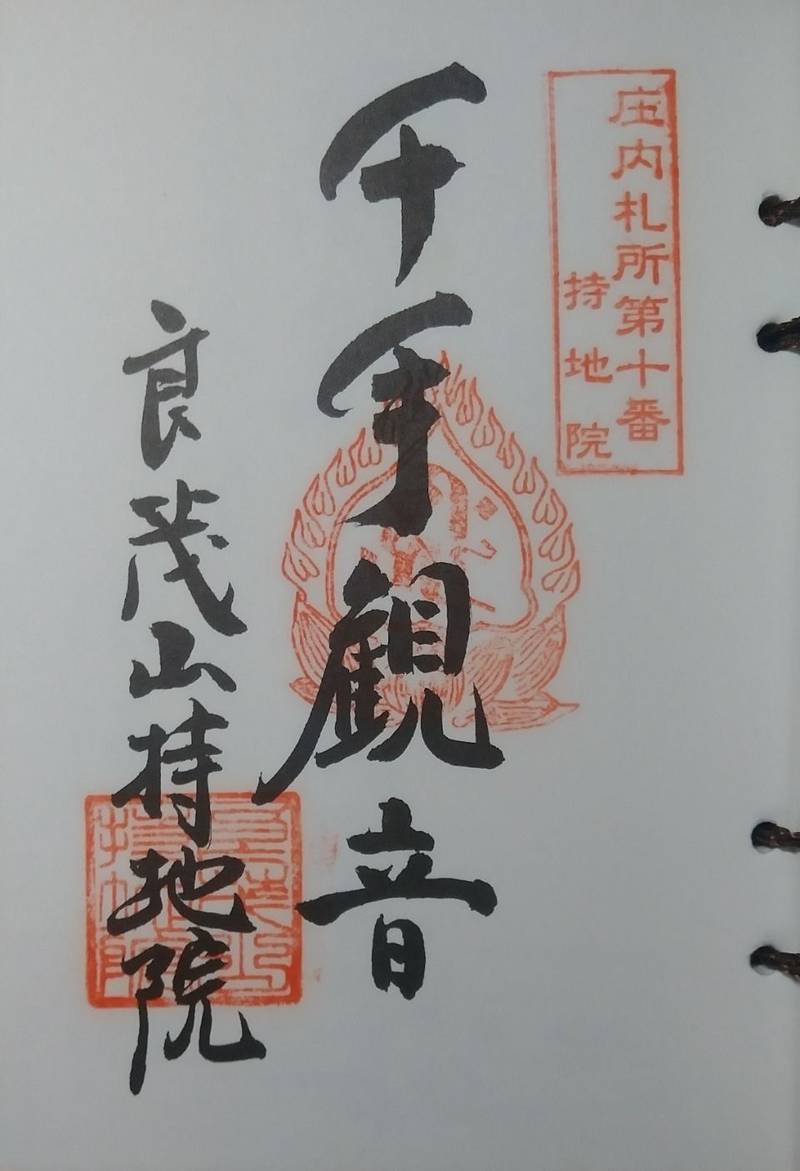 庄内札所第十番
持地院
千手観音
良茂山持地院